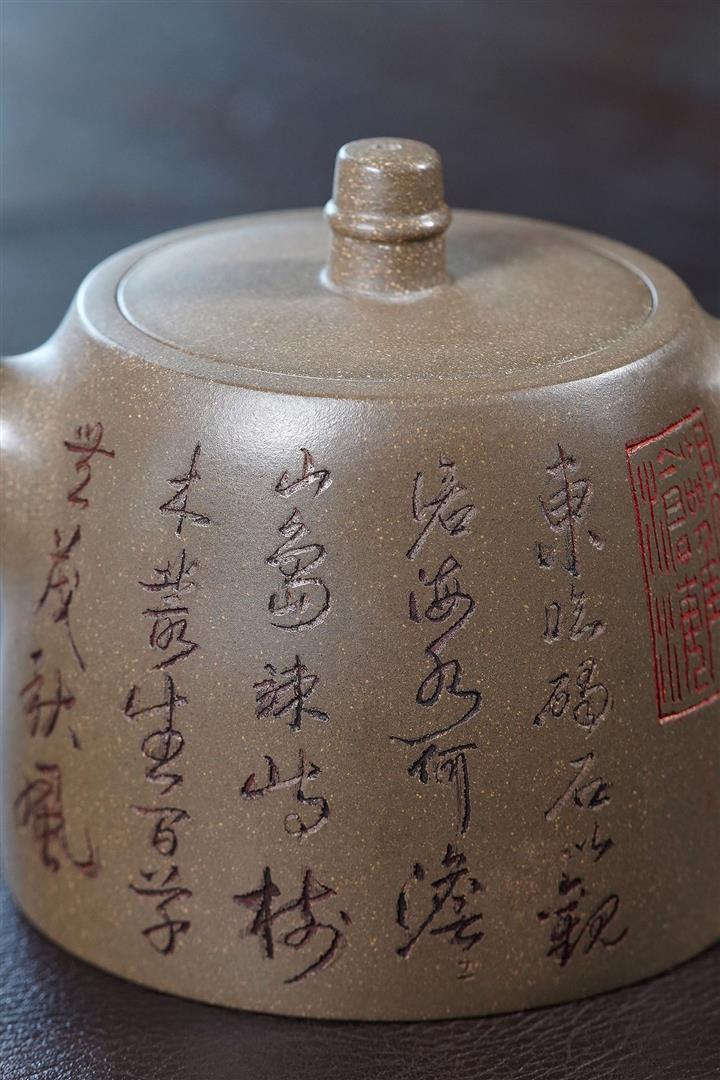 東臨碣石以觀
滄海水何澹〻
山島竦峙樹
木叢生百草
豐茂秋風